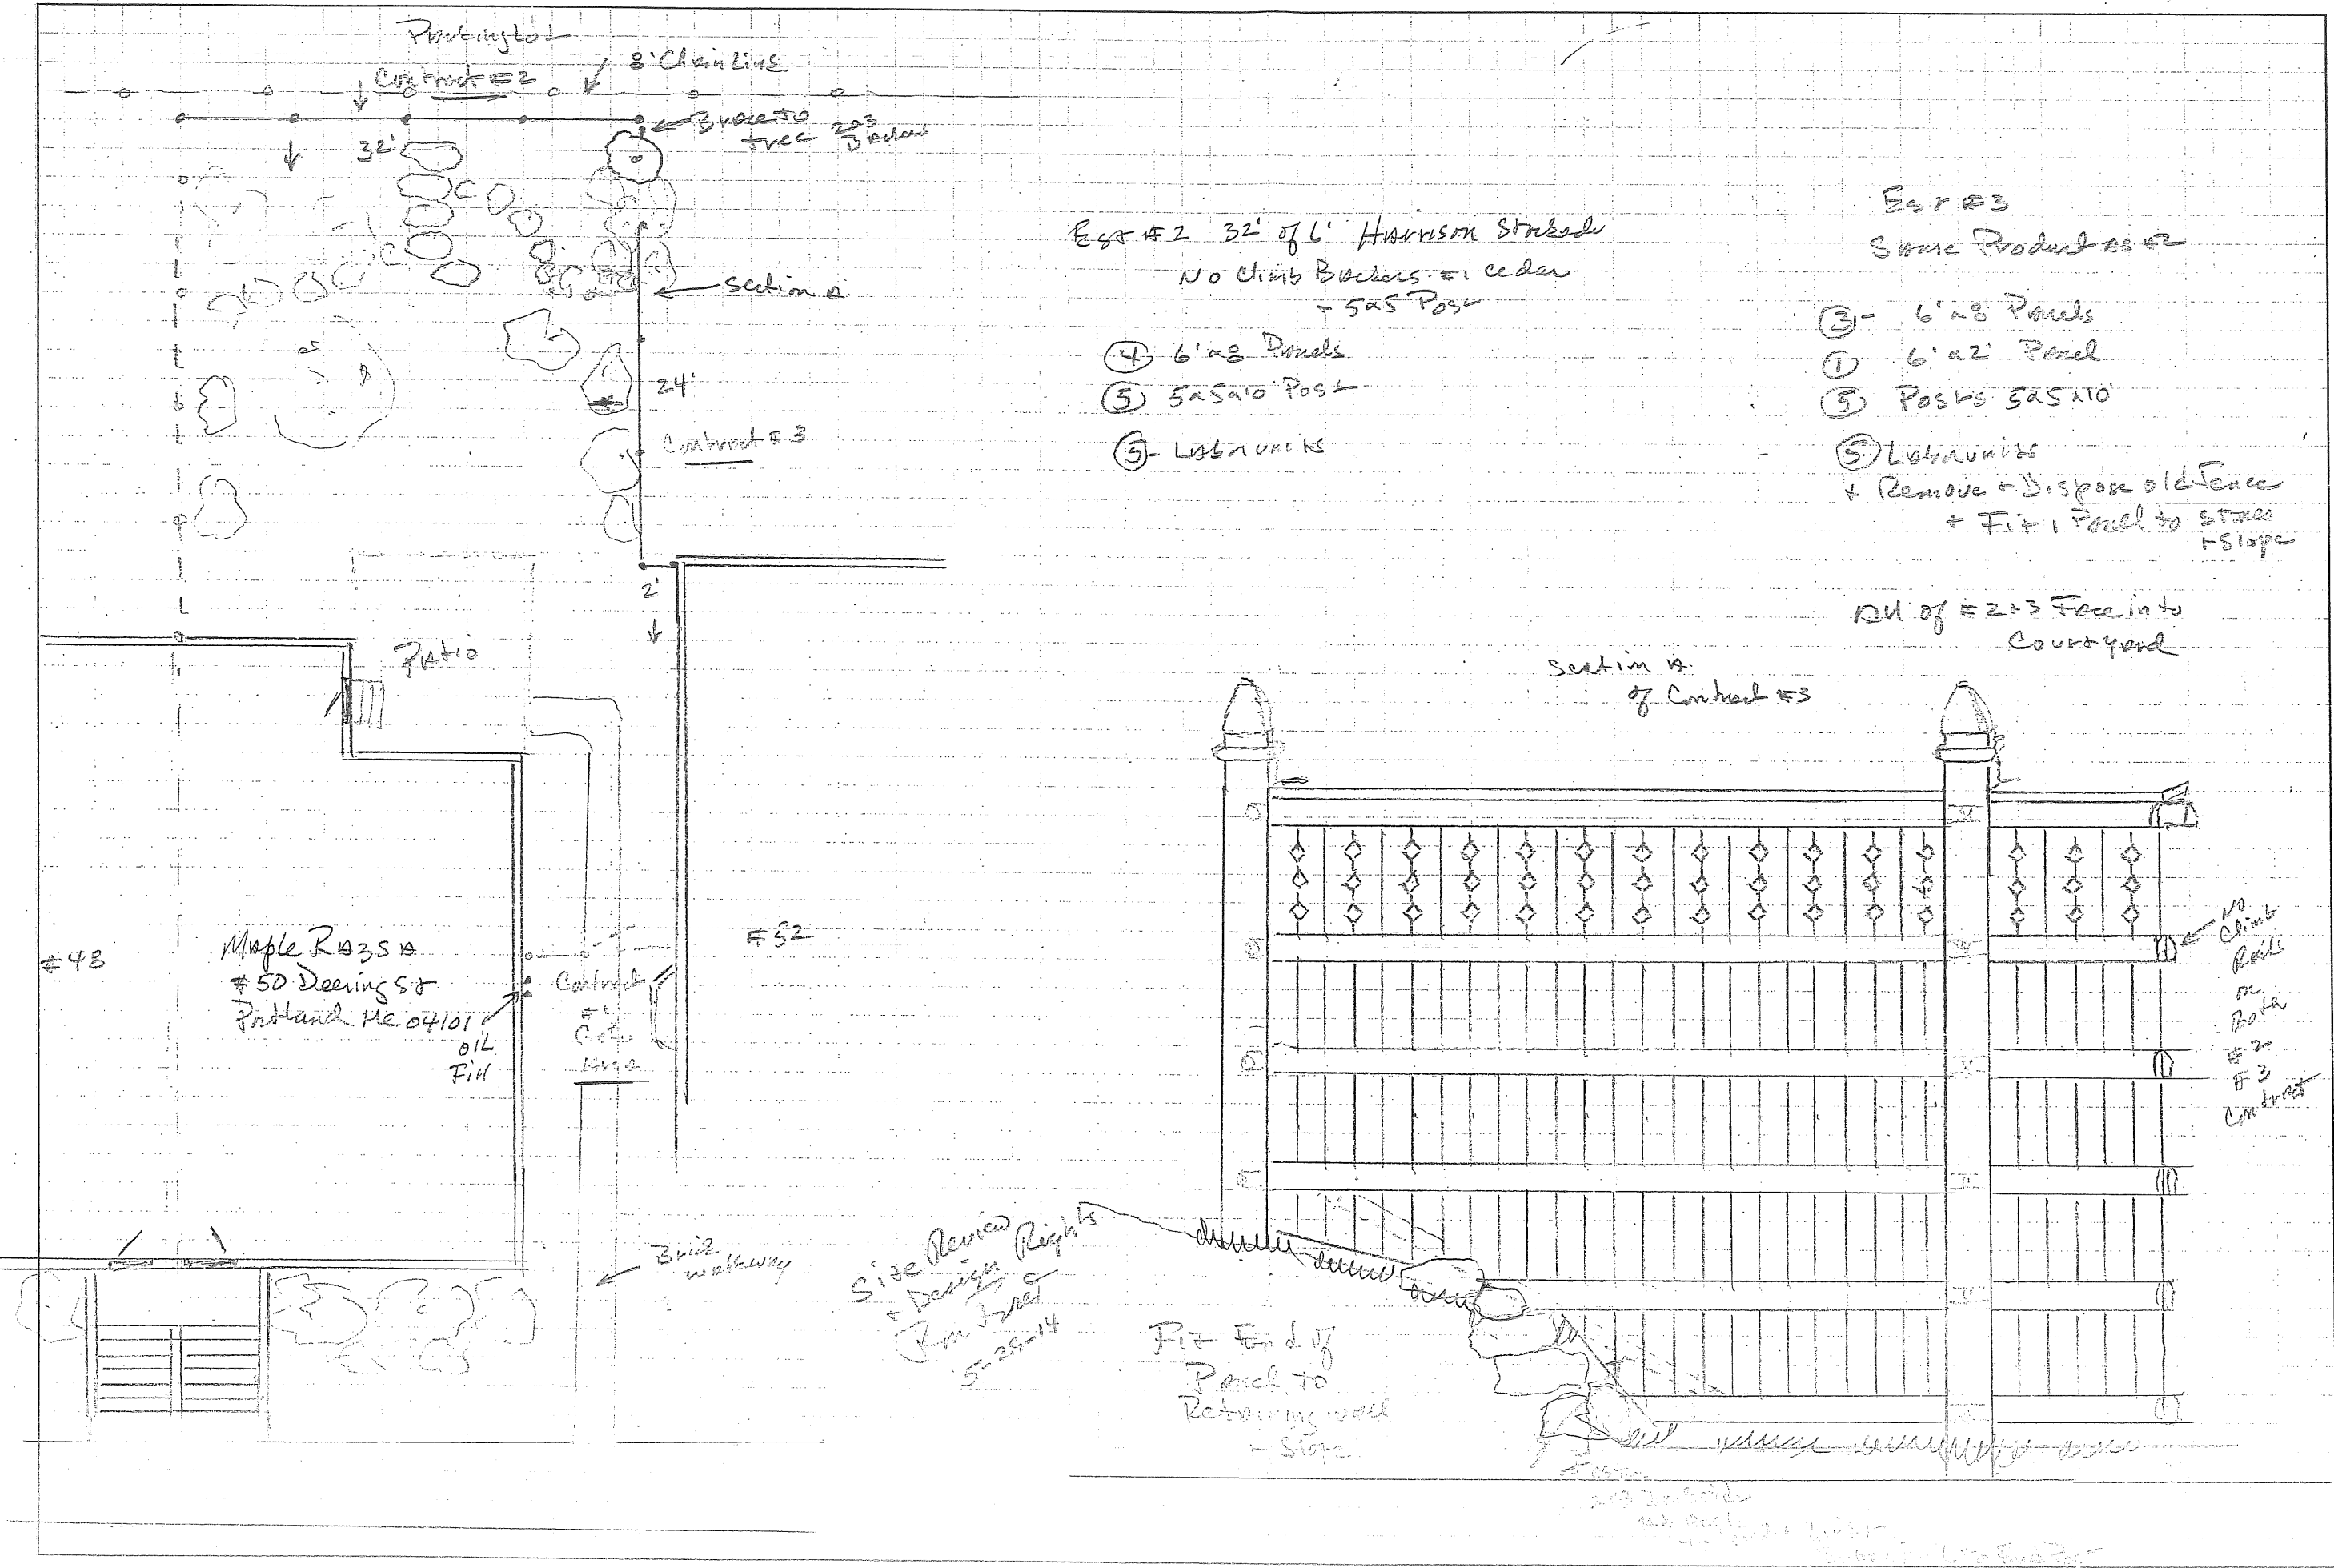 Parking Lot
Contract #2
8' Chain Link
Brace to
tree
32'
Section A
24'
Contract #3
2'
Patio
#48
Maple RAZSA
#50 Deering St
Portland ME 04101
OIL
Fill
Contract
#1
Gate
Area
#52
Brick
walkway
Est #2 32' of 6' Harrison Stockade
No Climb Backers #1 cedar
+ 5x5 Post
④ 6'x8 Panels
⑤ 5x5x10 Post
⑤- Labor units
Est #3
Same Product as #2
③- 6'x8 Panels
① 6'x2' Panel
⑤ Posts 5x5x10
⑤ Labor units
+ Remove + Dispose old Fence
+ Fit 1 Panel to Stones
+ Slope
All of #2+3 Face into
Courtyard
Section A
of Contract #3
No
Climb
Rails
on
Both
#2-
#3
Contract
Site Review
+ Design Rights
5-28-14
Fit End of
Panel to
Retaining wall
+ Slope